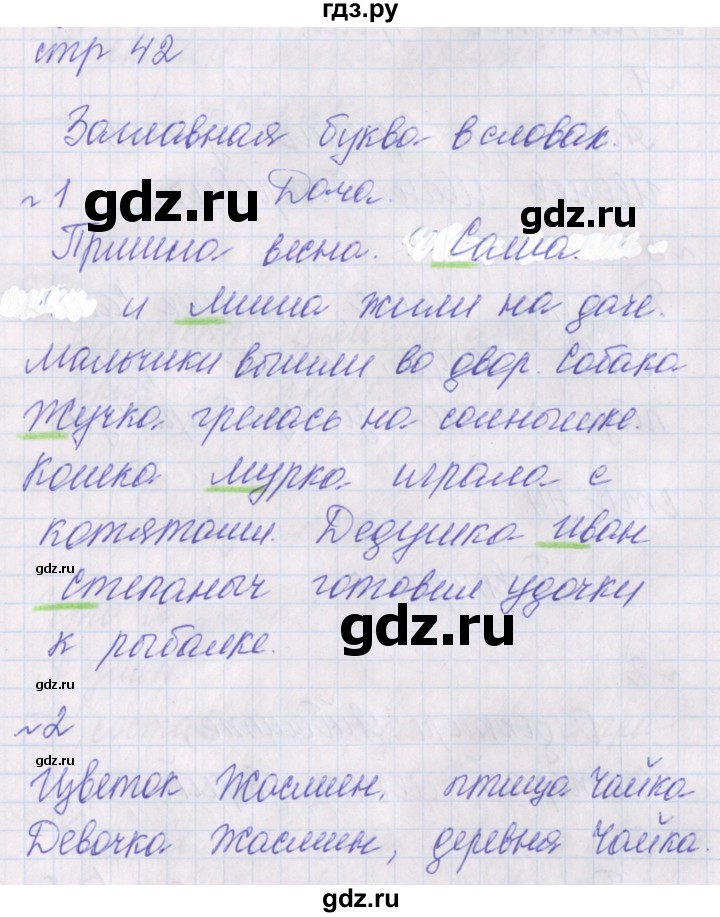 гдз.ру
стр 42
Заглавная буква в словах.
№1 Дача.
gdz.ru
gdz.ru
Пришла весна. Саша
и Миша жили на даче.
Мальчики вышли во двор. Собака
Жучка грелась на солнышке.
Кошка Мурка играла с
котятами. Дедушка Иван
gdz.ru
Степаныч готовил удочки
gdz.ru
к рыбалке.
gdz.ru
№2
gdz.ru
Цветок Жасмин, птица Чайка
Девочка Жасмин, деревня Чайка.
gdz.ru